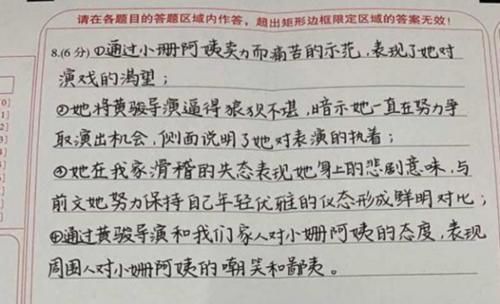 请在各题目的答题区域内作答，超出矩形边框限定区域的答案无效！
8.(6分)①通过小珊阿姨卖力而痛苦的示范，表现了她对
演戏的渴望；
②她将黄骏导演逼得狼狈不堪，暗示她一直在努力争
取演出机会，侧面说明了她对表演的执着；
③她在我家滑稽的失态表现她身上的悲剧意味，与
前文她努力保持自己年轻优雅的仪态形成鲜明对比；
④通过黄骏导演和我们家人对小姗阿姨的态度，表现
周围人对小姗阿姨的嘲笑和鄙夷。